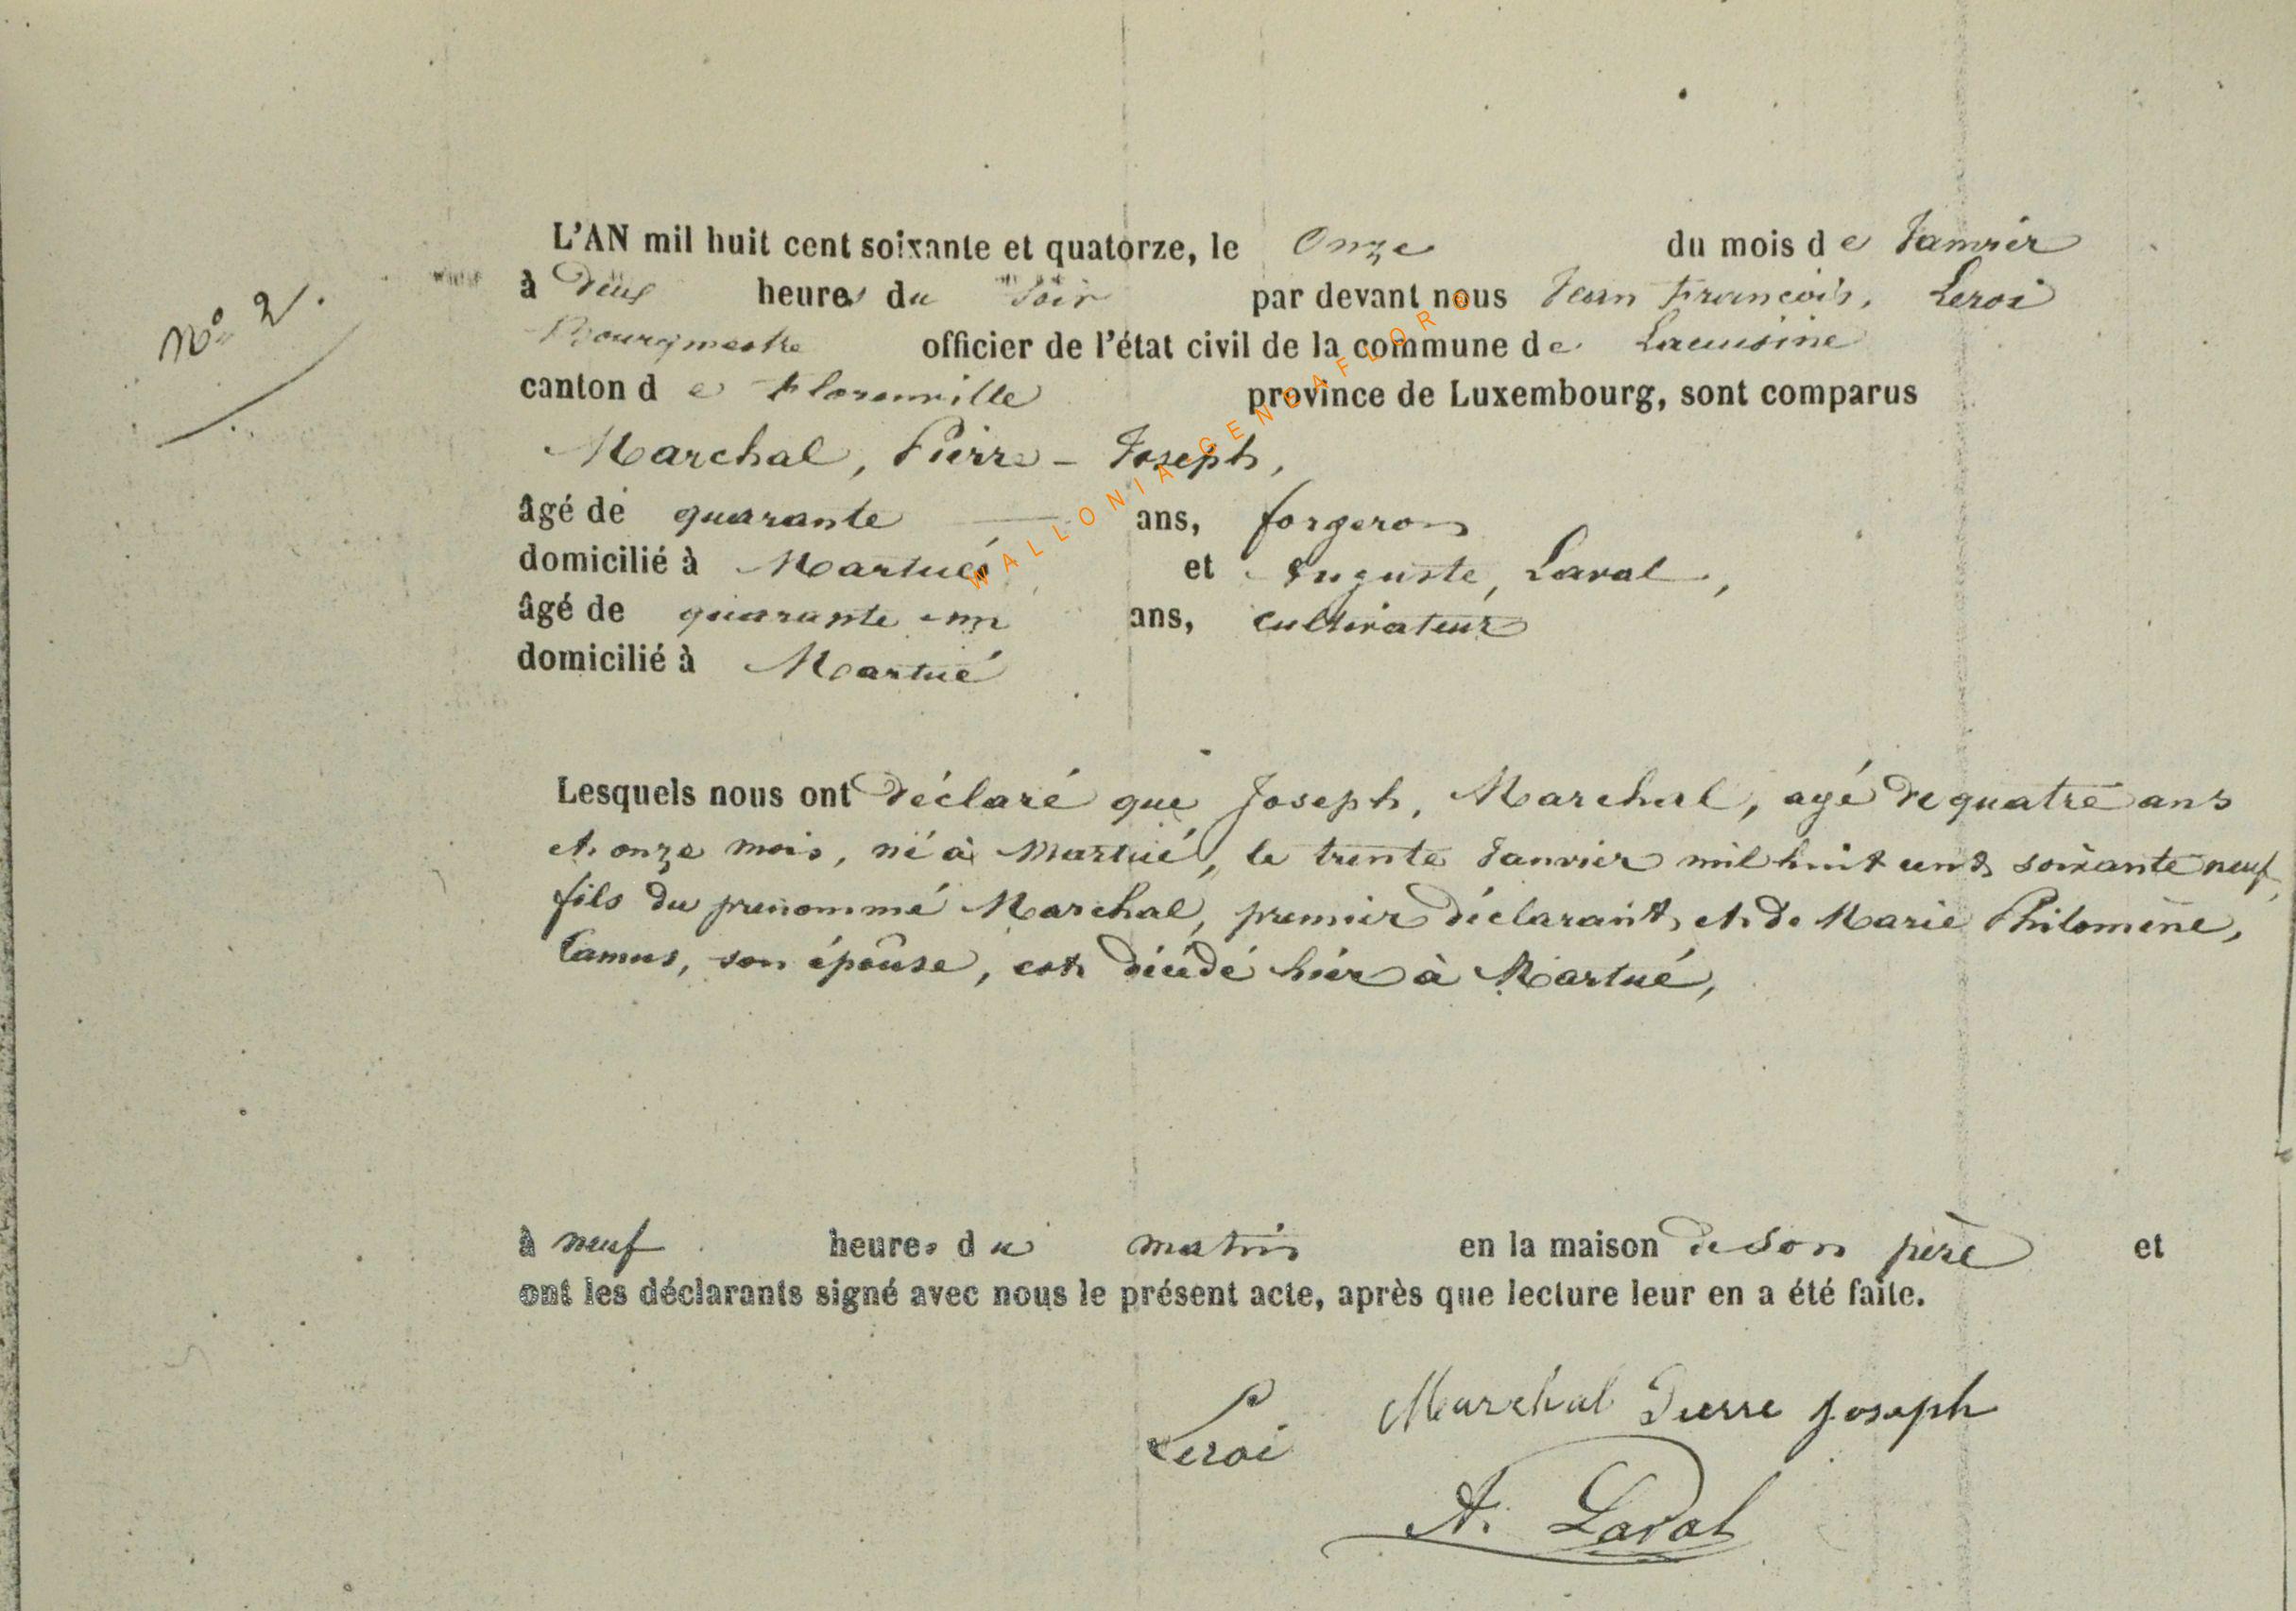 N° 2.
L'AN mil huit cent soixante et quatorze, le Onze du mois de Janvier
à deux heures du soir par devant nous Jean François, Leroi
Bourgmestre officier de l'état civil de la commune de Lacuisine
canton de Florenville province de Luxembourg, sont comparus
Marchal, Pierre - Joseph,
âgé de quarante ans, forgeron
domicilié à Martué et Auguste, Laval,
âgé de quarante un ans, cultivateur
domicilié à Martué
Lesquels nous ont déclaré que Joseph, Marchal, agé de quatre ans
et onze mois, né à Martué, le trente Janvier mil huit cent soixante neuf,
fils du prénommé Marchal, premier déclarant, et de Marie Philomène,
Camus, son épouse, est décédé hier à Martué,
à neuf heures du matin en la maison de son père et
ont les déclarants signé avec nous le présent acte, après que lecture leur en a été faite.
Marchal Pierre Joseph
Leroi
A. Laval